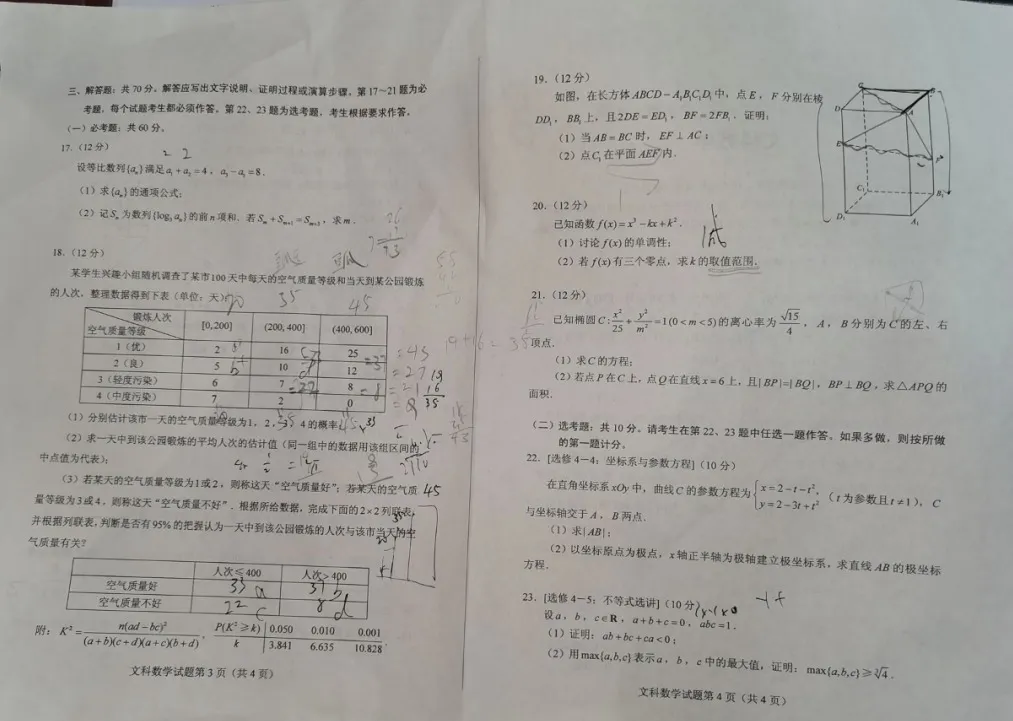 三、解答题：共 70 分。解答应写出文字说明、证明过程或演算步骤。第 17～21 题为必
考题，每个试题考生都必须作答。第 22、23 题为选考题，考生根据要求作答。
（一）必考题：共 60 分。
17.（12 分）
设等比数列{aₙ}满足 a₁ + a₂ = 4，a₃ − a₁ = 8．
（1）求{aₙ}的通项公式；
（2）记 Sₙ 为数列{log₃ aₙ}的前 n 项和．若 Sₘ + Sₘ₊₁ = Sₘ₊₃，求 m．
18.（12 分）
某学生兴趣小组随机调查了某市 100 天中每天的空气质量等级和当天到某公园锻炼
的人次，整理数据得到下表（单位：天）：
35 45
锻炼人次 [0, 200] (200, 400] (400, 600]
空气质量等级
1（优） 2 16 25
2（良） 5 10 12
3（轻度污染） 6 7 8
4（中度污染） 7 2 0
（1）分别估计该市一天的空气质量等级为 1，2，3，4 的概率；
（2）求一天中到该公园锻炼的平均人次的估计值（同一组中的数据用该组区间的
中点值为代表）；
（3）若某天的空气质量等级为 1 或 2，则称这天“空气质量好”；若某天的空气质
量等级为 3 或 4，则称这天“空气质量不好”．根据所给数据，完成下面的 2×2 列联表，
并根据列联表，判断是否有 95% 的把握认为一天中到该公园锻炼的人次与该市当天的空
气质量有关？
人次≤400 人次>400
空气质量好 33 a 37 b
空气质量不好 22 c 8 d
附：K² = n(ad − bc)² / (a + b)(c + d)(a + c)(b + d)，
P(K² ≥ k) 0.050 0.010 0.001
k 3.841 6.635 10.828．
文科数学试题第 3 页（共 4 页）
19.（12 分）
如图，在长方体 ABCD − A₁B₁C₁D₁ 中，点 E，F 分别在棱
DD₁，BB₁ 上，且 2DE = ED₁，BF = 2FB₁．证明：
（1）当 AB = BC 时，EF ⊥ AC；
（2）点 C₁ 在平面 AEF 内．
D A
E F
C₁ B₁
D₁ A₁
20.（12 分）
已知函数 f(x) = x³ − kx + k²．
（1）讨论 f(x) 的单调性；
（2）若 f(x) 有三个零点，求 k 的取值范围．
21.（12 分）
已知椭圆 C : x²/25 + y²/m² = 1(0 < m < 5) 的离心率为 √15/4，A，B 分别为 C 的左、右
顶点．
（1）求 C 的方程；
（2）若点 P 在 C 上，点 Q 在直线 x = 6 上，且 |BP| = |BQ|，BP ⊥ BQ，求△APQ 的
面积．
（二）选考题：共 10 分。请考生在第 22、23 题中任选一题作答。如果多做，则按所做
的第一题计分。
22.［选修 4−4：坐标系与参数方程］（10 分）
在直角坐标系 xOy 中，曲线 C 的参数方程为 { x = 2 − t − t²，y = 2 − 3t + t² （t 为参数且 t ≠ 1），C
与坐标轴交于 A，B 两点．
（1）求 |AB|；
（2）以坐标原点为极点，x 轴正半轴为极轴建立极坐标系，求直线 AB 的极坐标
方程．
23.［选修 4−5：不等式选讲］（10 分）
设 a，b，c∈R，a + b + c = 0，abc = 1．
（1）证明：ab + bc + ca < 0；
（2）用 max{a, b, c} 表示 a，b，c 中的最大值，证明：max{a, b, c} ≥ ∛4．
文科数学试题第 4 页（共 4 页）